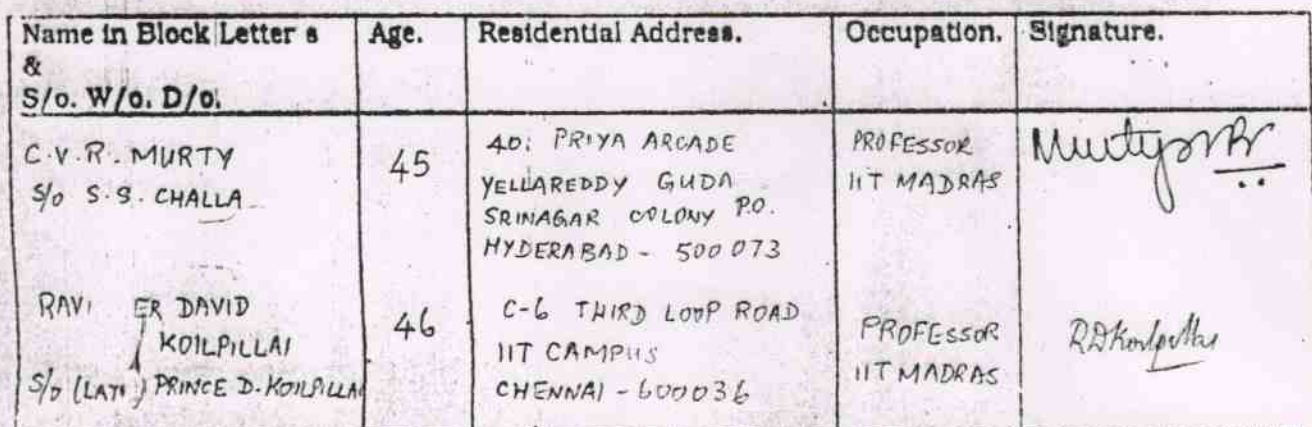 Name in Block Letter s
&
S/o. W/o. D/o.
Age.
Residential Address.
Occupation.
Signature.
C.V.R. MURTY
S/o S.S. CHALLA
45
40, PRIYA ARCADE
YELLAREDDY GUDA
SRINAGAR COLONY P.O.
HYDERABAD - 500 073
PROFESSOR
IIT MADRAS
Murty
RAVI ER DAVID
KOILPILLAI
S/o (LATE) PRINCE D. KOILPILLAI
46
C-6 THIRD LOOP ROAD
IIT CAMPUS
CHENNAI - 600036
PROFESSOR
IIT MADRAS
RDKoilpillai